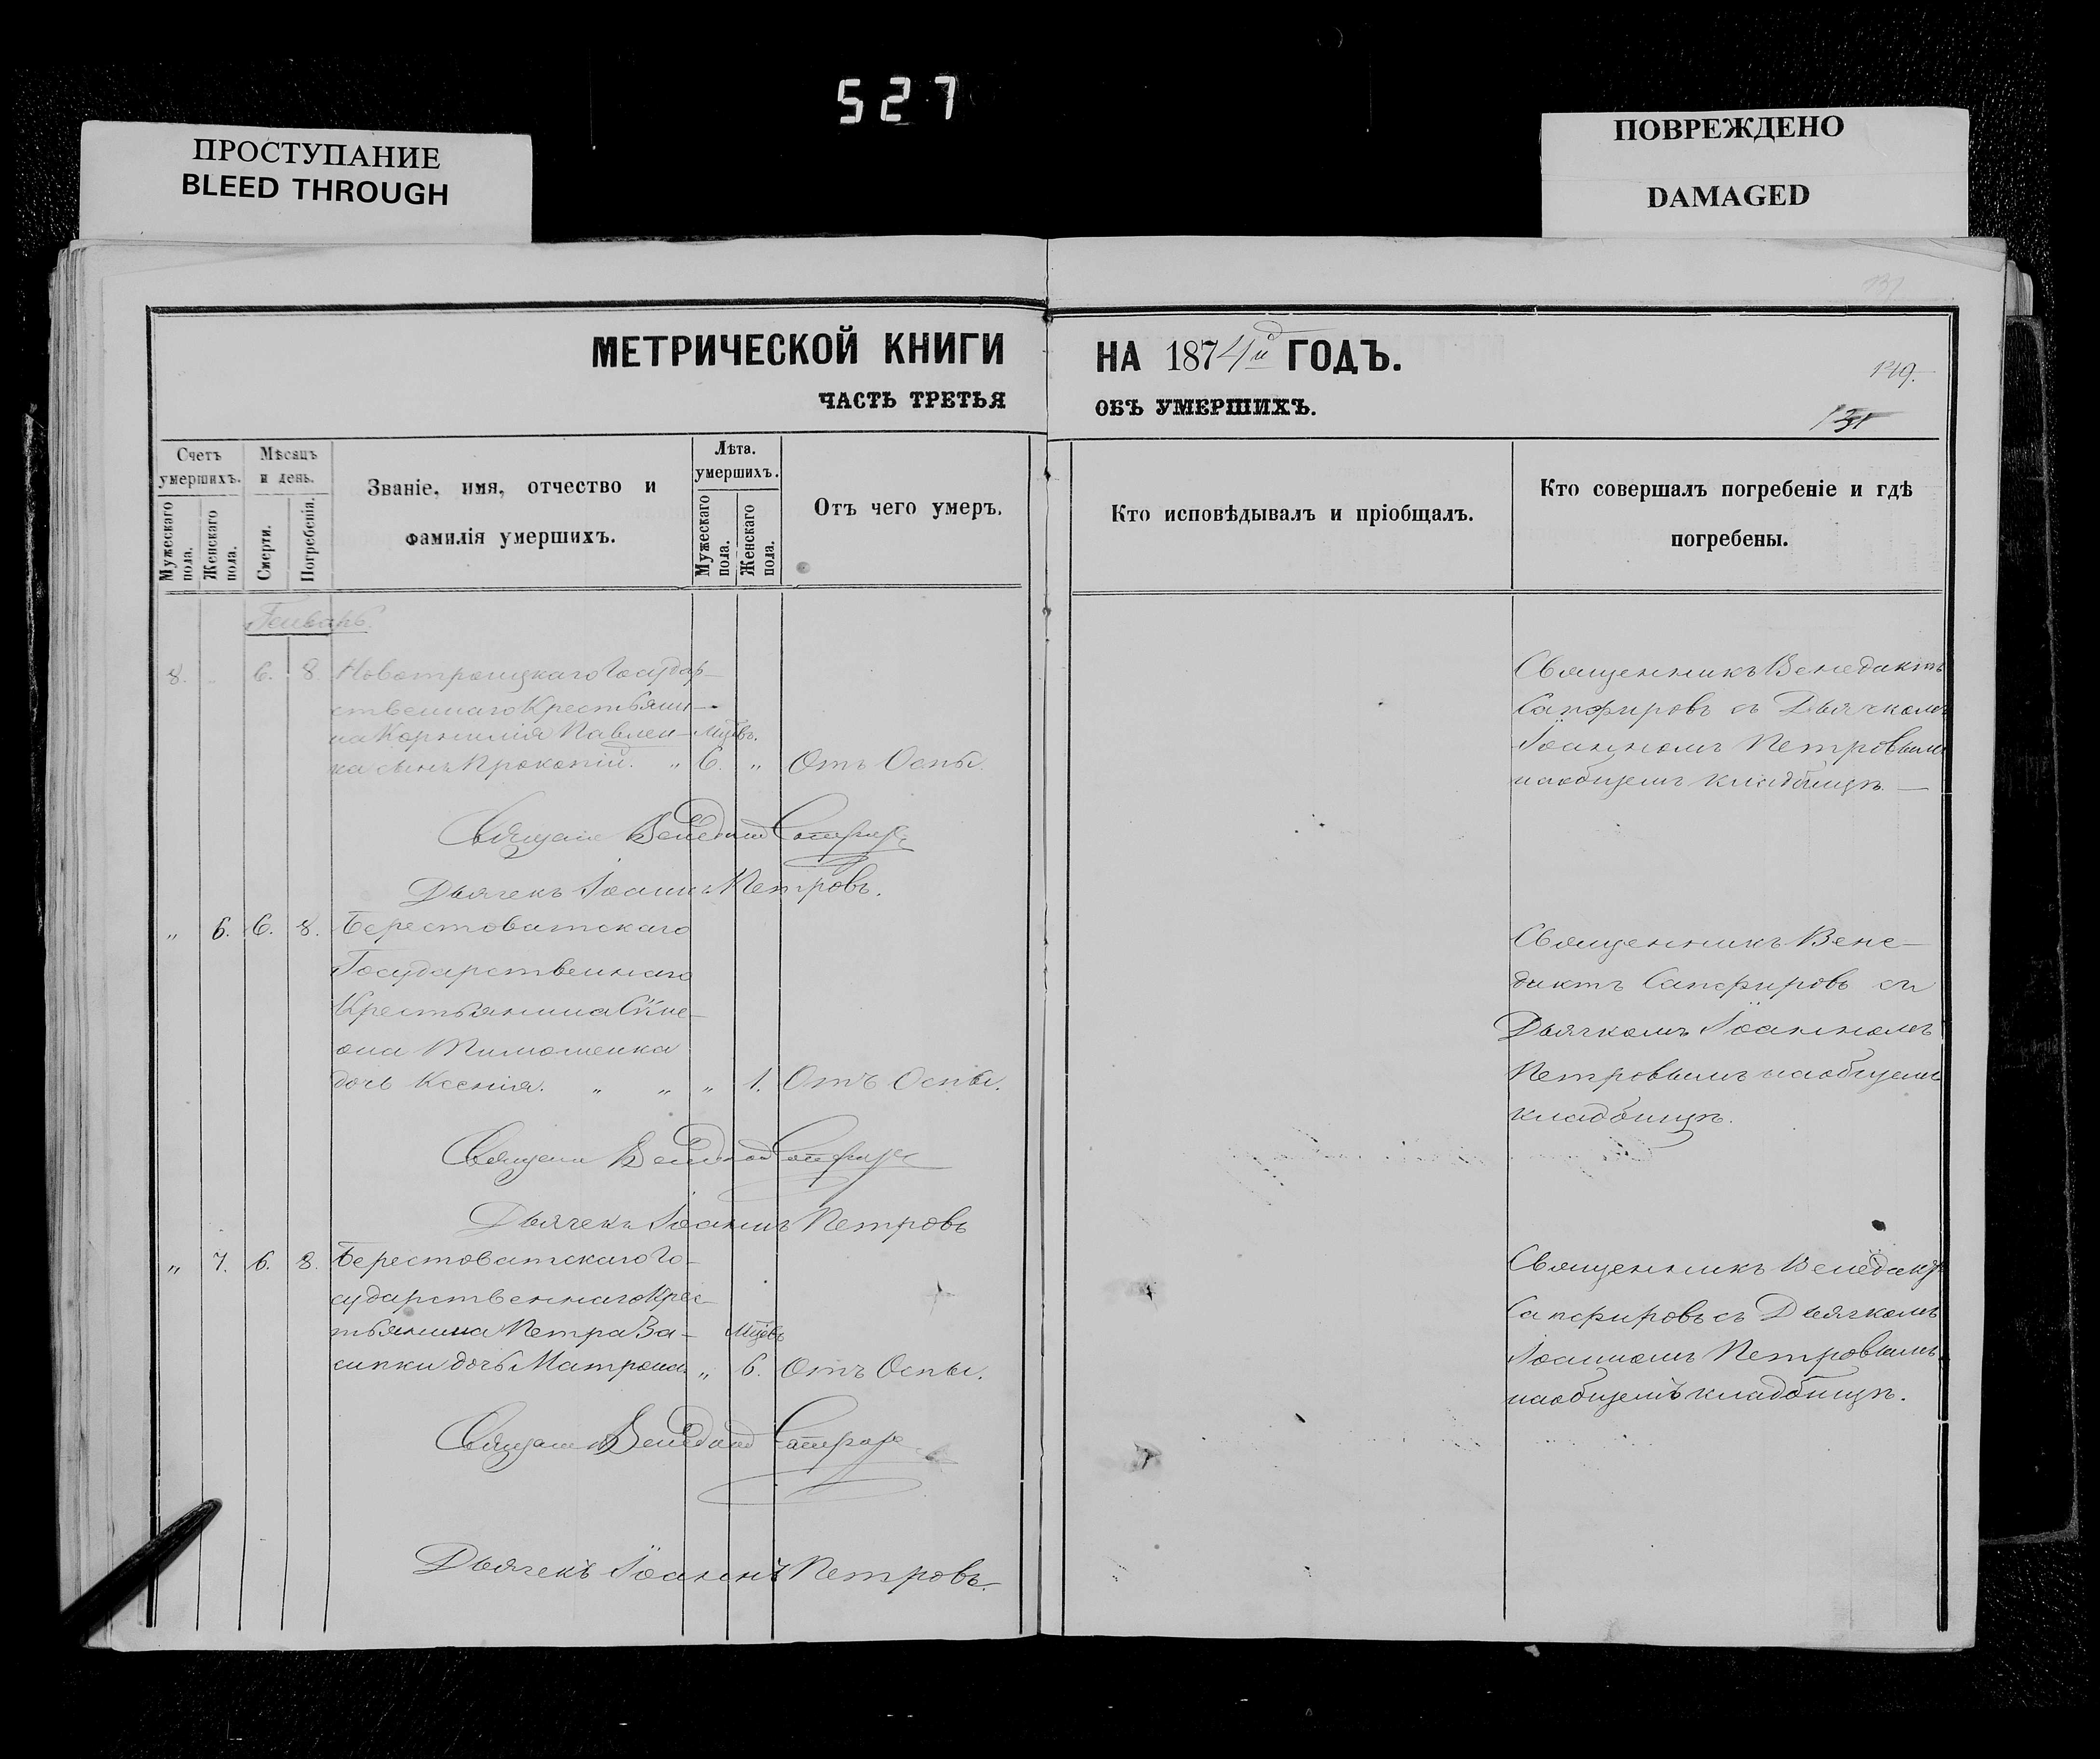 527
ПРОСТУПАНИЕ
BLEED THROUGH
ПОВРЕЖДЕНО
DAMAGED
МЕТРИЧЕСКОЙ КНИГИ
ЧАСТЬ ТРЕТЬЯ
НА 1874й ГОДЪ.
ОБЪ УМЕРШИХЪ.
149.
131
Счетъ умершихъ.
Мужескаго пола.
Женскаго пола.
Мѣсяцъ и день.
Смерти.
Погребенія.
Званіе, имя, отчество и
фамилія умершихъ.
Лѣта. умершихъ.
Мужескаго пола.
Женскаго пола.
Отъ чего умеръ.
Кто исповѣдывалъ и пріобщалъ.
Кто совершалъ погребеніе и гдѣ
погребены.
Генварь.
8. 6. 8 Новотроицкаго Государ-
ственнаго Крестьяни-
на Корнилія Павлен- Мцвъ.
ка сынъ Прокопій. „ 6. „ Отъ Оспы.
Священникъ Венедиктъ
Сапфировъ съ Дьячкомъ
Іоанномъ Петровымъ
на общемъ кладбищѣ.
Священ Венедикт Сапфиров
Дьячекъ Іоаннъ Петровъ.
„ 6. 6. 8. Берестоватскаго
Государственнаго
Крестьянина Симе-
она Тимошенка
дочь Ксенія. „ „ „ 1. Отъ Оспы.
Священникъ Вене-
диктъ Сапфировъ съ
Дьячкомъ Іоанномъ
Петровымъ на общемъ
кладбищѣ.
Священ Венедикт Сапфиров
Дьячекъ Іоаннъ Петровъ
„ 7. 6. 8. Берестоватскаго Го-
сударственнаго Крес-
тьянина Петра За- Мцвъ
сипки дочь Матрона. „ 6. Отъ Оспы.
Священникъ Венедиктъ
Сапфировъ съ Дьячкомъ
Іоанномъ Петровымъ
на общемъ кладбищѣ.
Священ Венедикт Сапфиров
Дьячекъ Іоаннъ Петровъ.